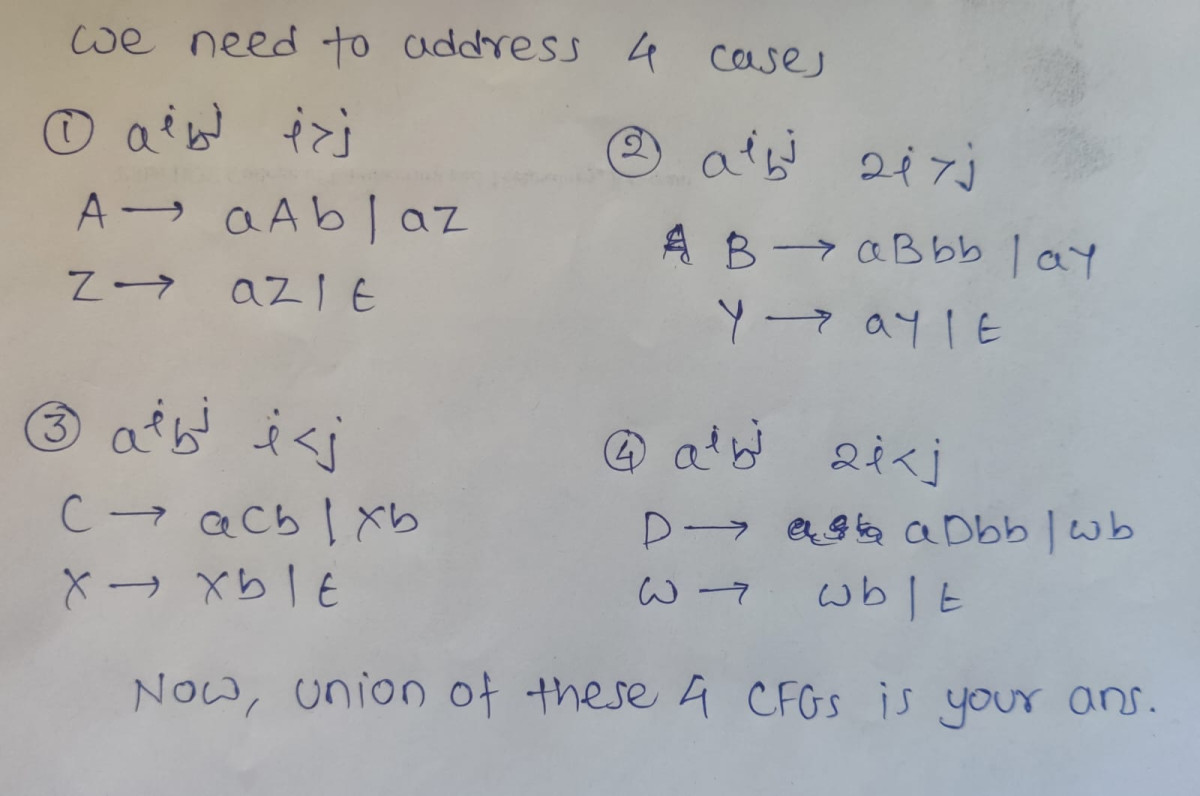 We need to address 4 cases
① aⁱbʲ i>j
A → aAb | aZ
Z → aZ | ε
② aⁱbʲ 2i>j
B → aBbb | aY
Y → aY | ε
③ aⁱbʲ i<j
C → aCb | Xb
X → Xb | ε
④ aⁱbʲ 2i<j
D → aDbb | Wb
W → Wb | ε
Now, union of these 4 CFGs is your ans.